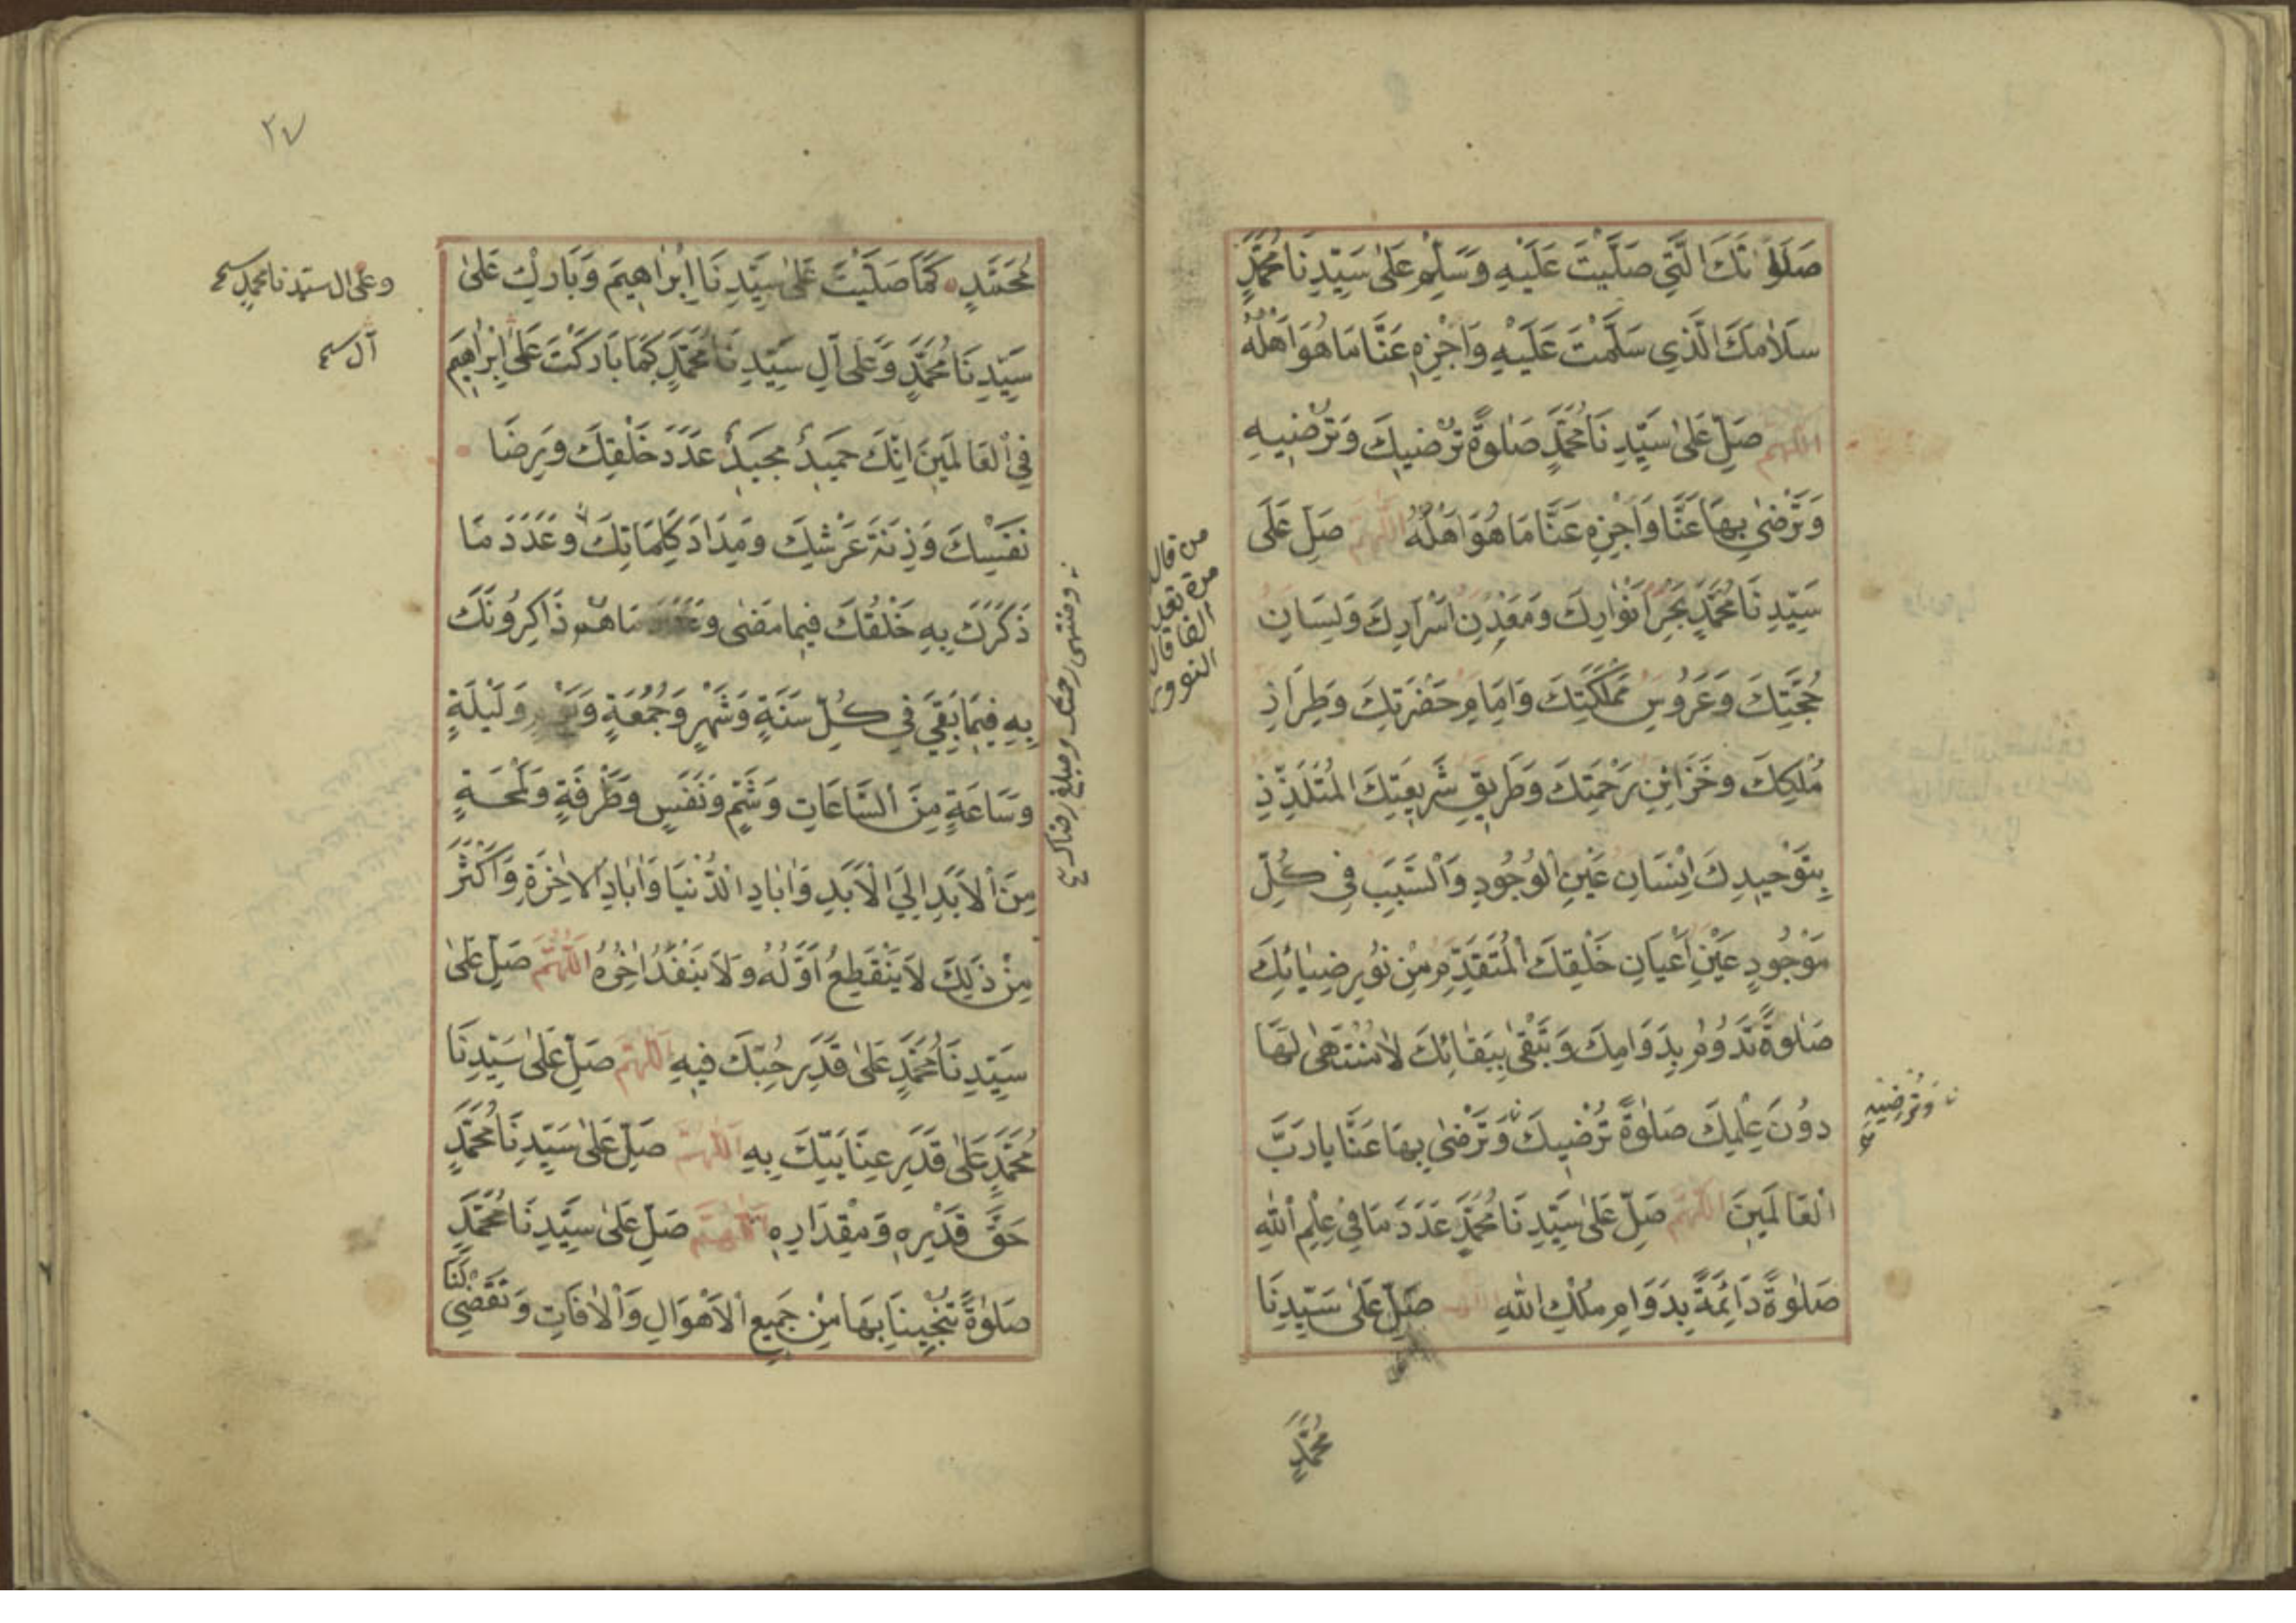 صَلَوٰتِكَ الَّتِي صَلَّيْتَ عَلَيْهِ وَسَلِّمْ عَلَىٰ سَيِّدِنَا مُحَمَّدٍ
سَلَامَكَ الَّذِي سَلَّمْتَ عَلَيْهِ وَاَجْزِهِ عَنَّا مَا هُوَ اَهْلُهُ
اَللّٰهُمَّ صَلِّ عَلَىٰ سَيِّدِنَا مُحَمَّدٍ صَلٰوةً تُرْضِيكَ وَتُرْضِيهِ
وَتَرْضٰى بِهَا عَنَّا وَاَجْزِهِ عَنَّا مَا هُوَ اَهْلُهُ اَللّٰهُمَّ صَلِّ عَلَى
سَيِّدِنَا مُحَمَّدٍ بَحْرِ اَنْوَارِكَ وَمَعْدِنِ اَسْرَارِكَ وَلِسَانِ
حُجَّتِكَ وَعَرُوسِ مَمْلَكَتِكَ وَاِمَامِ حَضْرَتِكَ وَطِرَازِ
مُلْكِكَ وَخَزَائِنِ رَحْمَتِكَ وَطَرِيقِ شَرِيعَتِكَ الْمُتَلَذِّذِ
بِتَوْحِيدِكَ اِنْسَانِ عَيْنِ الْوُجُودِ وَالسَّبَبِ فِي كُلِّ
مَوْجُودٍ عَيْنِ اَعْيَانِ خَلْقِكَ الْمُتَقَدِّمِ مِنْ نُورِ ضِيَائِكَ
صَلٰوةً تَدُومُ بِدَوَامِكَ وَتَبْقٰى بِبَقَائِكَ لَا مُنْتَهٰى لَهَا
دُونَ عِلْمِكَ صَلٰوةً تُرْضِيكَ وَتَرْضٰى بِهَا عَنَّا يَا رَبَّ
وَتُرْضِيهِ
الْعَالَمِينَ اَللّٰهُمَّ صَلِّ عَلَىٰ سَيِّدِنَا مُحَمَّدٍ عَدَدَ مَا فِي عِلْمِ اللّٰهِ
صَلٰوةً دَائِمَةً بِدَوَامِ مُلْكِ اللّٰهِ اَللّٰهُمَّ صَلِّ عَلَىٰ سَيِّدِنَا
مُحَمَّدٍ
من قال
مرة تعدل
الفا قال
النووى
٢٧
مُحَمَّدٍ كَمَا صَلَّيْتَ عَلَىٰ سَيِّدِنَا اِبْرَاهِيمَ وَبَارِكْ عَلَىٰ
وعلى ال سيدنا محمد
سَيِّدِنَا مُحَمَّدٍ وَعَلَى آلِ سَيِّدِنَا مُحَمَّدٍ كَمَا بَارَكْتَ عَلَىٰ اِبْرَاهِيمَ
آل
فِي الْعَالَمِينَ اِنَّكَ حَمِيدٌ مَجِيدٌ عَدَدَ خَلْقِكَ وَرِضَا
نَفْسِكَ وَزِنَةَ عَرْشِكَ وَمِدَادَ كَلِمَاتِكَ وَعَدَدَ مَا
ومنتهى رحمتك ومبلغ رضاك
ذَكَرَكَ بِهِ خَلْقُكَ فِيمَا مَضٰى وَعَدَدَ مَا هُمْ ذَاكِرُونَكَ
بِهِ فِيمَا بَقِيَ فِي كُلِّ سَنَةٍ وَشَهْرٍ وَجُمُعَةٍ وَيَوْمٍ وَلَيْلَةٍ
وَسَاعَةٍ مِنَ السَّاعَاتِ وَشَمٍّ وَنَفَسٍ وَطَرْفَةٍ وَلَمْحَةٍ
مِنَ الْاَبَدِ اِلَى الْاَبَدِ وَاٰبَادِ الدُّنْيَا وَاٰبَادِ الْاٰخِرَةِ وَاَكْثَرَ
مِنْ ذٰلِكَ لَا يَنْقَطِعُ اَوَّلُهُ وَلَا يَنْفَدُ اٰخِرُهُ اَللّٰهُمَّ صَلِّ عَلَىٰ
سَيِّدِنَا مُحَمَّدٍ عَلَىٰ قَدْرِ حُبِّكَ فِيهِ اَللّٰهُمَّ صَلِّ عَلَىٰ سَيِّدِنَا
مُحَمَّدٍ عَلَىٰ قَدْرِ عِنَايَتِكَ بِهِ اَللّٰهُمَّ صَلِّ عَلَىٰ سَيِّدِنَا مُحَمَّدٍ
حَقَّ قَدْرِهِ وَمِقْدَارِهِ اَللّٰهُمَّ صَلِّ عَلَىٰ سَيِّدِنَا مُحَمَّدٍ
صَلٰوةً تُنْجِينَا بِهَا مِنْ جَمِيعِ الْاَهْوَالِ وَالْاٰفَاتِ وَتَقْضِي لَنَا